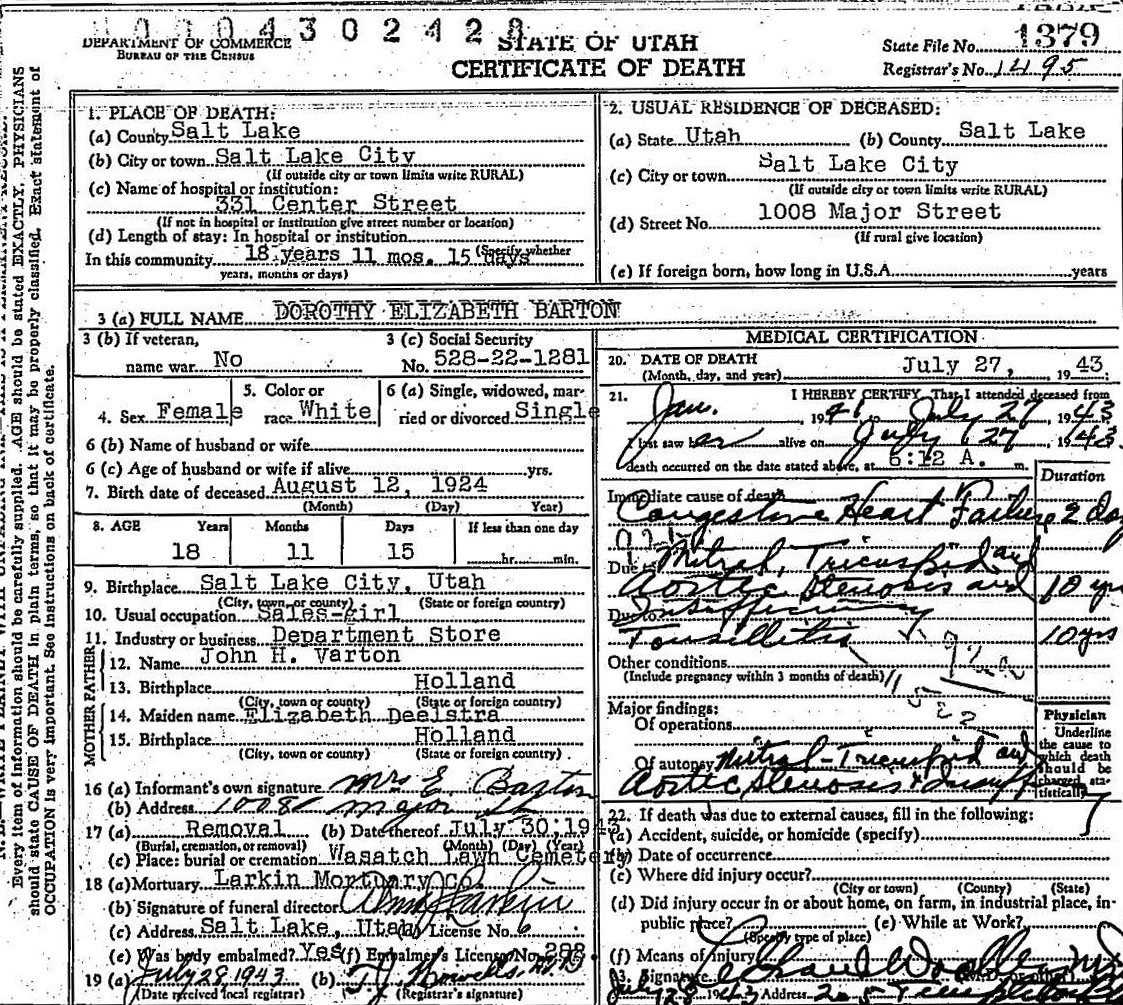 DEPARTMENT OF COMMERCE
BUREAU OF THE CENSUS
STATE OF UTAH
CERTIFICATE OF DEATH
State File No. 1379
Registrar's No. 1495
Every item of information should be carefully supplied. AGE should be stated EXACTLY. PHYSICIANS
should state CAUSE OF DEATH in plain terms, so that it may be properly classified. Exact statement of
OCCUPATION is very important. See instructions on back of certificate.
1. PLACE OF DEATH:
(a) County Salt Lake
(b) City or town Salt Lake City
(If outside city or town limits write RURAL)
(c) Name of hospital or institution:
331 Center Street
(If not in hospital or institution give street number or location)
(d) Length of stay: In hospital or institution
In this community 18 years 11 mos. 15 days (Specify whether
years, months or days)
2. USUAL RESIDENCE OF DECEASED:
(a) State Utah (b) County Salt Lake
(c) City or town Salt Lake City
(If outside city or town limits write RURAL)
(d) Street No. 1008 Major Street
(If rural give location)
(e) If foreign born, how long in U.S.A. years
3 (a) FULL NAME DOROTHY ELIZABETH BARTON
3 (b) If veteran,
name war No
3 (c) Social Security
No. 528-22-1281
4. Sex Female
5. Color or
race White
6 (a) Single, widowed, mar-
ried or divorced Single
6 (b) Name of husband or wife
6 (c) Age of husband or wife if alive yrs.
7. Birth date of deceased August 12, 1924
(Month) (Day) (Year)
8. AGE Years Months Days If less than one day
18 11 15 hr. min.
9. Birthplace Salt Lake City, Utah
(City, town or county) (State or foreign country)
10. Usual occupation Sales-girl
11. Industry or business Department Store
FATHER
12. Name John H. Varton
13. Birthplace Holland
(City, town or county) (State or foreign country)
MOTHER
14. Maiden name Elizabeth Deelstra
15. Birthplace Holland
(City, town or county) (State or foreign country)
16 (a) Informant's own signature Mrs E. Barton
(b) Address 1008 Major St
17 (a) Removal (b) Date thereof July 30, 1943
(Burial, cremation, or removal) (Month) (Day) (Year)
(c) Place: burial or cremation Wasatch Lawn Cemetery
18 (a) Mortuary Larkin Mortuary Co.
(b) Signature of funeral director
(c) Address Salt Lake, Utah (d) License No. 6
(e) Was body embalmed? Yes (f) Embalmer's License No. 288
19 (a) July 28, 1943 (b) T.J. Howells, M.D.
(Date received local registrar) (Registrar's signature)
MEDICAL CERTIFICATION
20. DATE OF DEATH
(Month, day, and year) July 27, 1943
21. I HEREBY CERTIFY, That I attended deceased from
Jan. 19 to July 27 1943
I last saw her alive on July 27, 1943.
death occurred on the date stated above, at 6:12 A. m.
Duration
Immediate cause of death
Congestive Heart Failure 2 day
Due to Mitral, Tricuspid and
Aortic Stenosis and 10 yr
Due to Insufficiency
Tonsillitis 10 yrs
Other conditions
(Include pregnancy within 3 months of death)
Major findings:
Of operations
Of autopsy Mitral-Tricuspid and
Aortic Stenosis + Insuff
Physician
Underline
the cause to
which death
should be
charged sta-
tistically
22. If death was due to external causes, fill in the following:
(a) Accident, suicide, or homicide (specify)
(b) Date of occurrence
(c) Where did injury occur?
(City or town) (County) (State)
(d) Did injury occur in or about home, on farm, in industrial place, in-
public place? (e) While at Work?
(Specify type of place)
(f) Means of injury
23. Signature (M.D. or other)
July 28 1943 Address